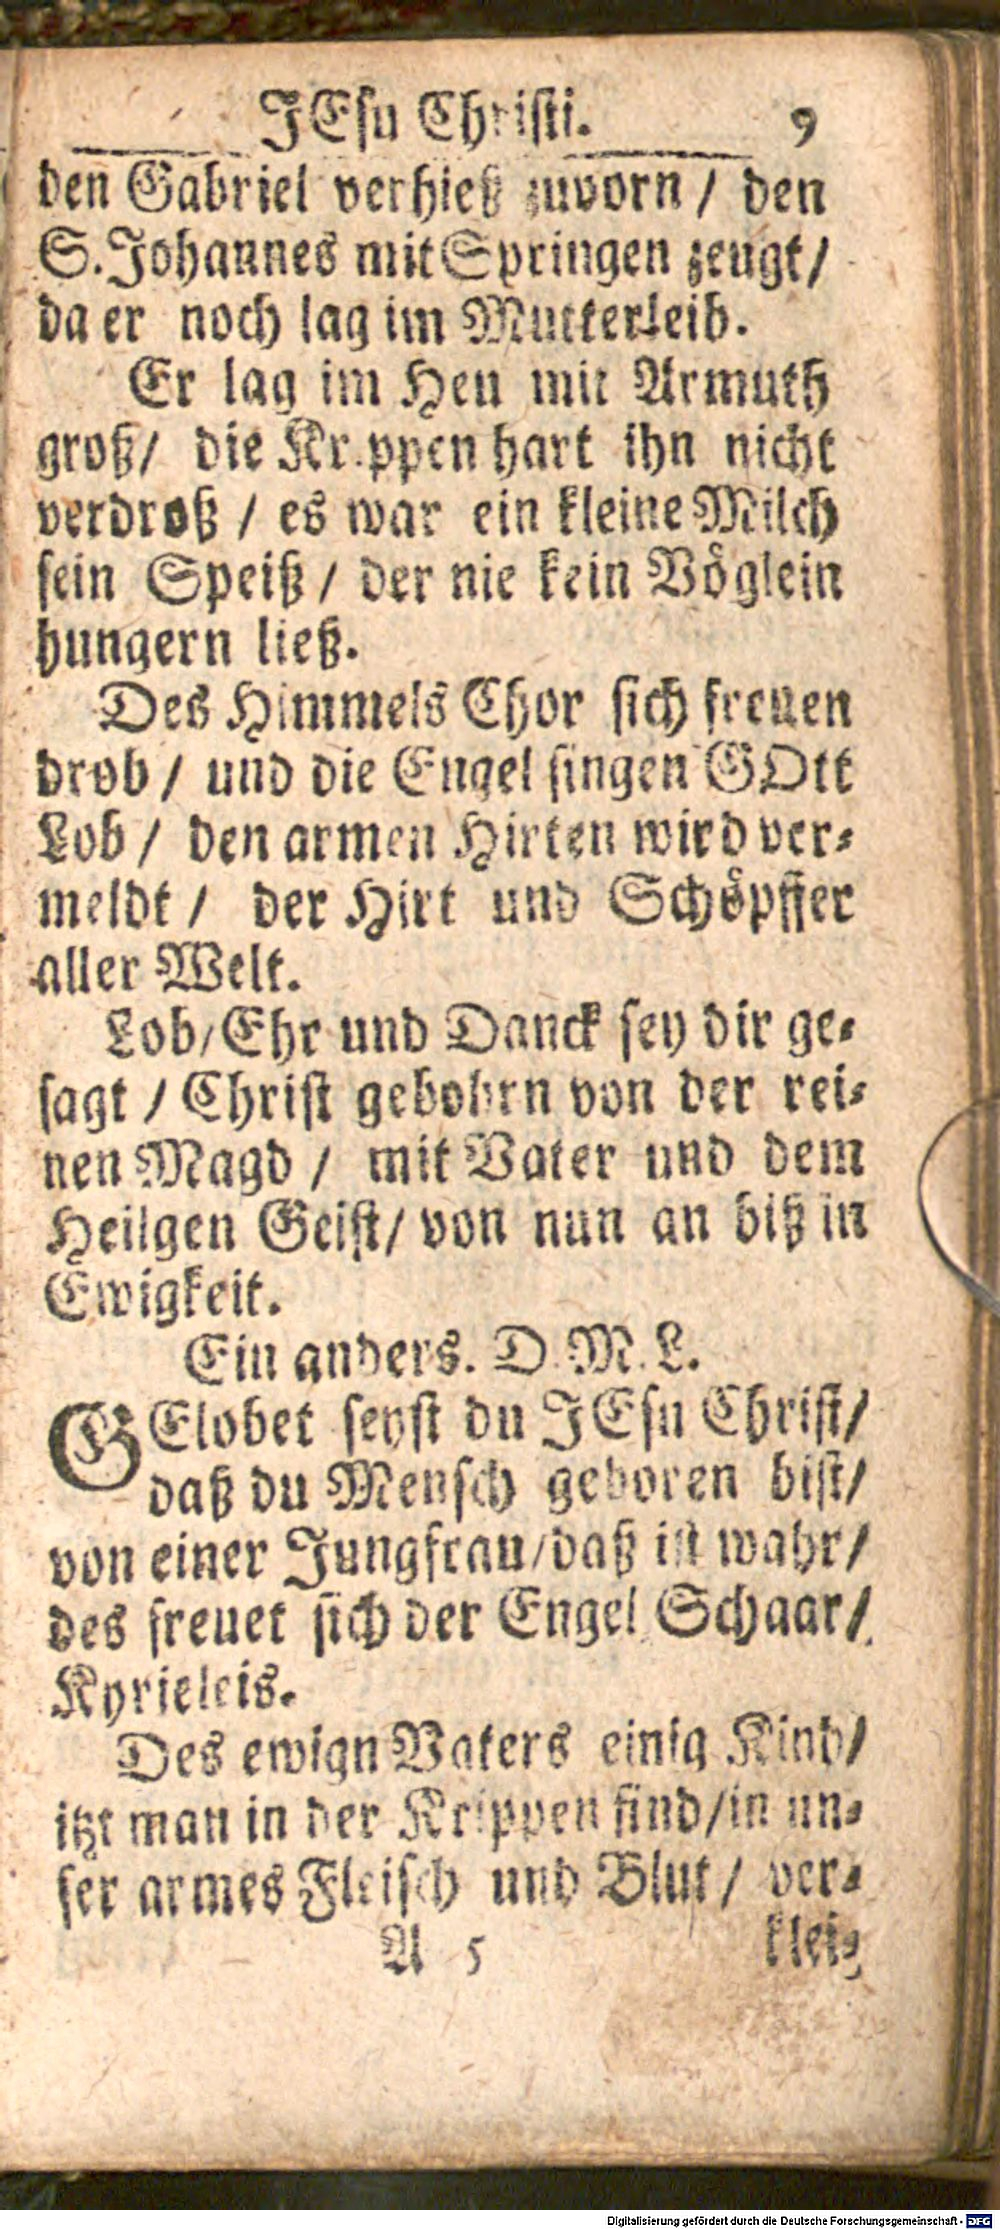 JEsu Christi. 9
den Gabriel verhieß zuvorn / den
S. Johannes mit Springen zeugt /
da er noch lag im Mutterleib.
Er lag im Heu mit Armuth
groß / die Krippen hart ihn nicht
verdroß / es war ein kleine Milch
sein Speiß / der nie kein Vöglein
hungern ließ.
Des Himmels Chor sich freuen
drob / und die Engel singen GOtt
Lob / den armen Hirten wird ver-
meldt / der Hirt und Schöpffer
aller Welt.
Lob / Ehr und Danck sey dir ge-
sagt / Christ gebohrn von der rei-
nen Magd / mit Vater und dem
Heilgen Geist / von nun an biß in
Ewigkeit.
Ein anders. D. M. L.
GElobet seyst du JEsu Christ /
daß du Mensch geboren bist /
von einer Jungfrau / daß ist wahr /
des freuet sich der Engel Schaar /
Kyrieleis.
Des ewign Vaters einig Kind /
itzt man in der Krippen find / in un-
ser armes Fleisch und Blut / ver-
A 5 klei-
Digitalisierung gefördert durch die Deutsche Forschungsgemeinschaft - DFG